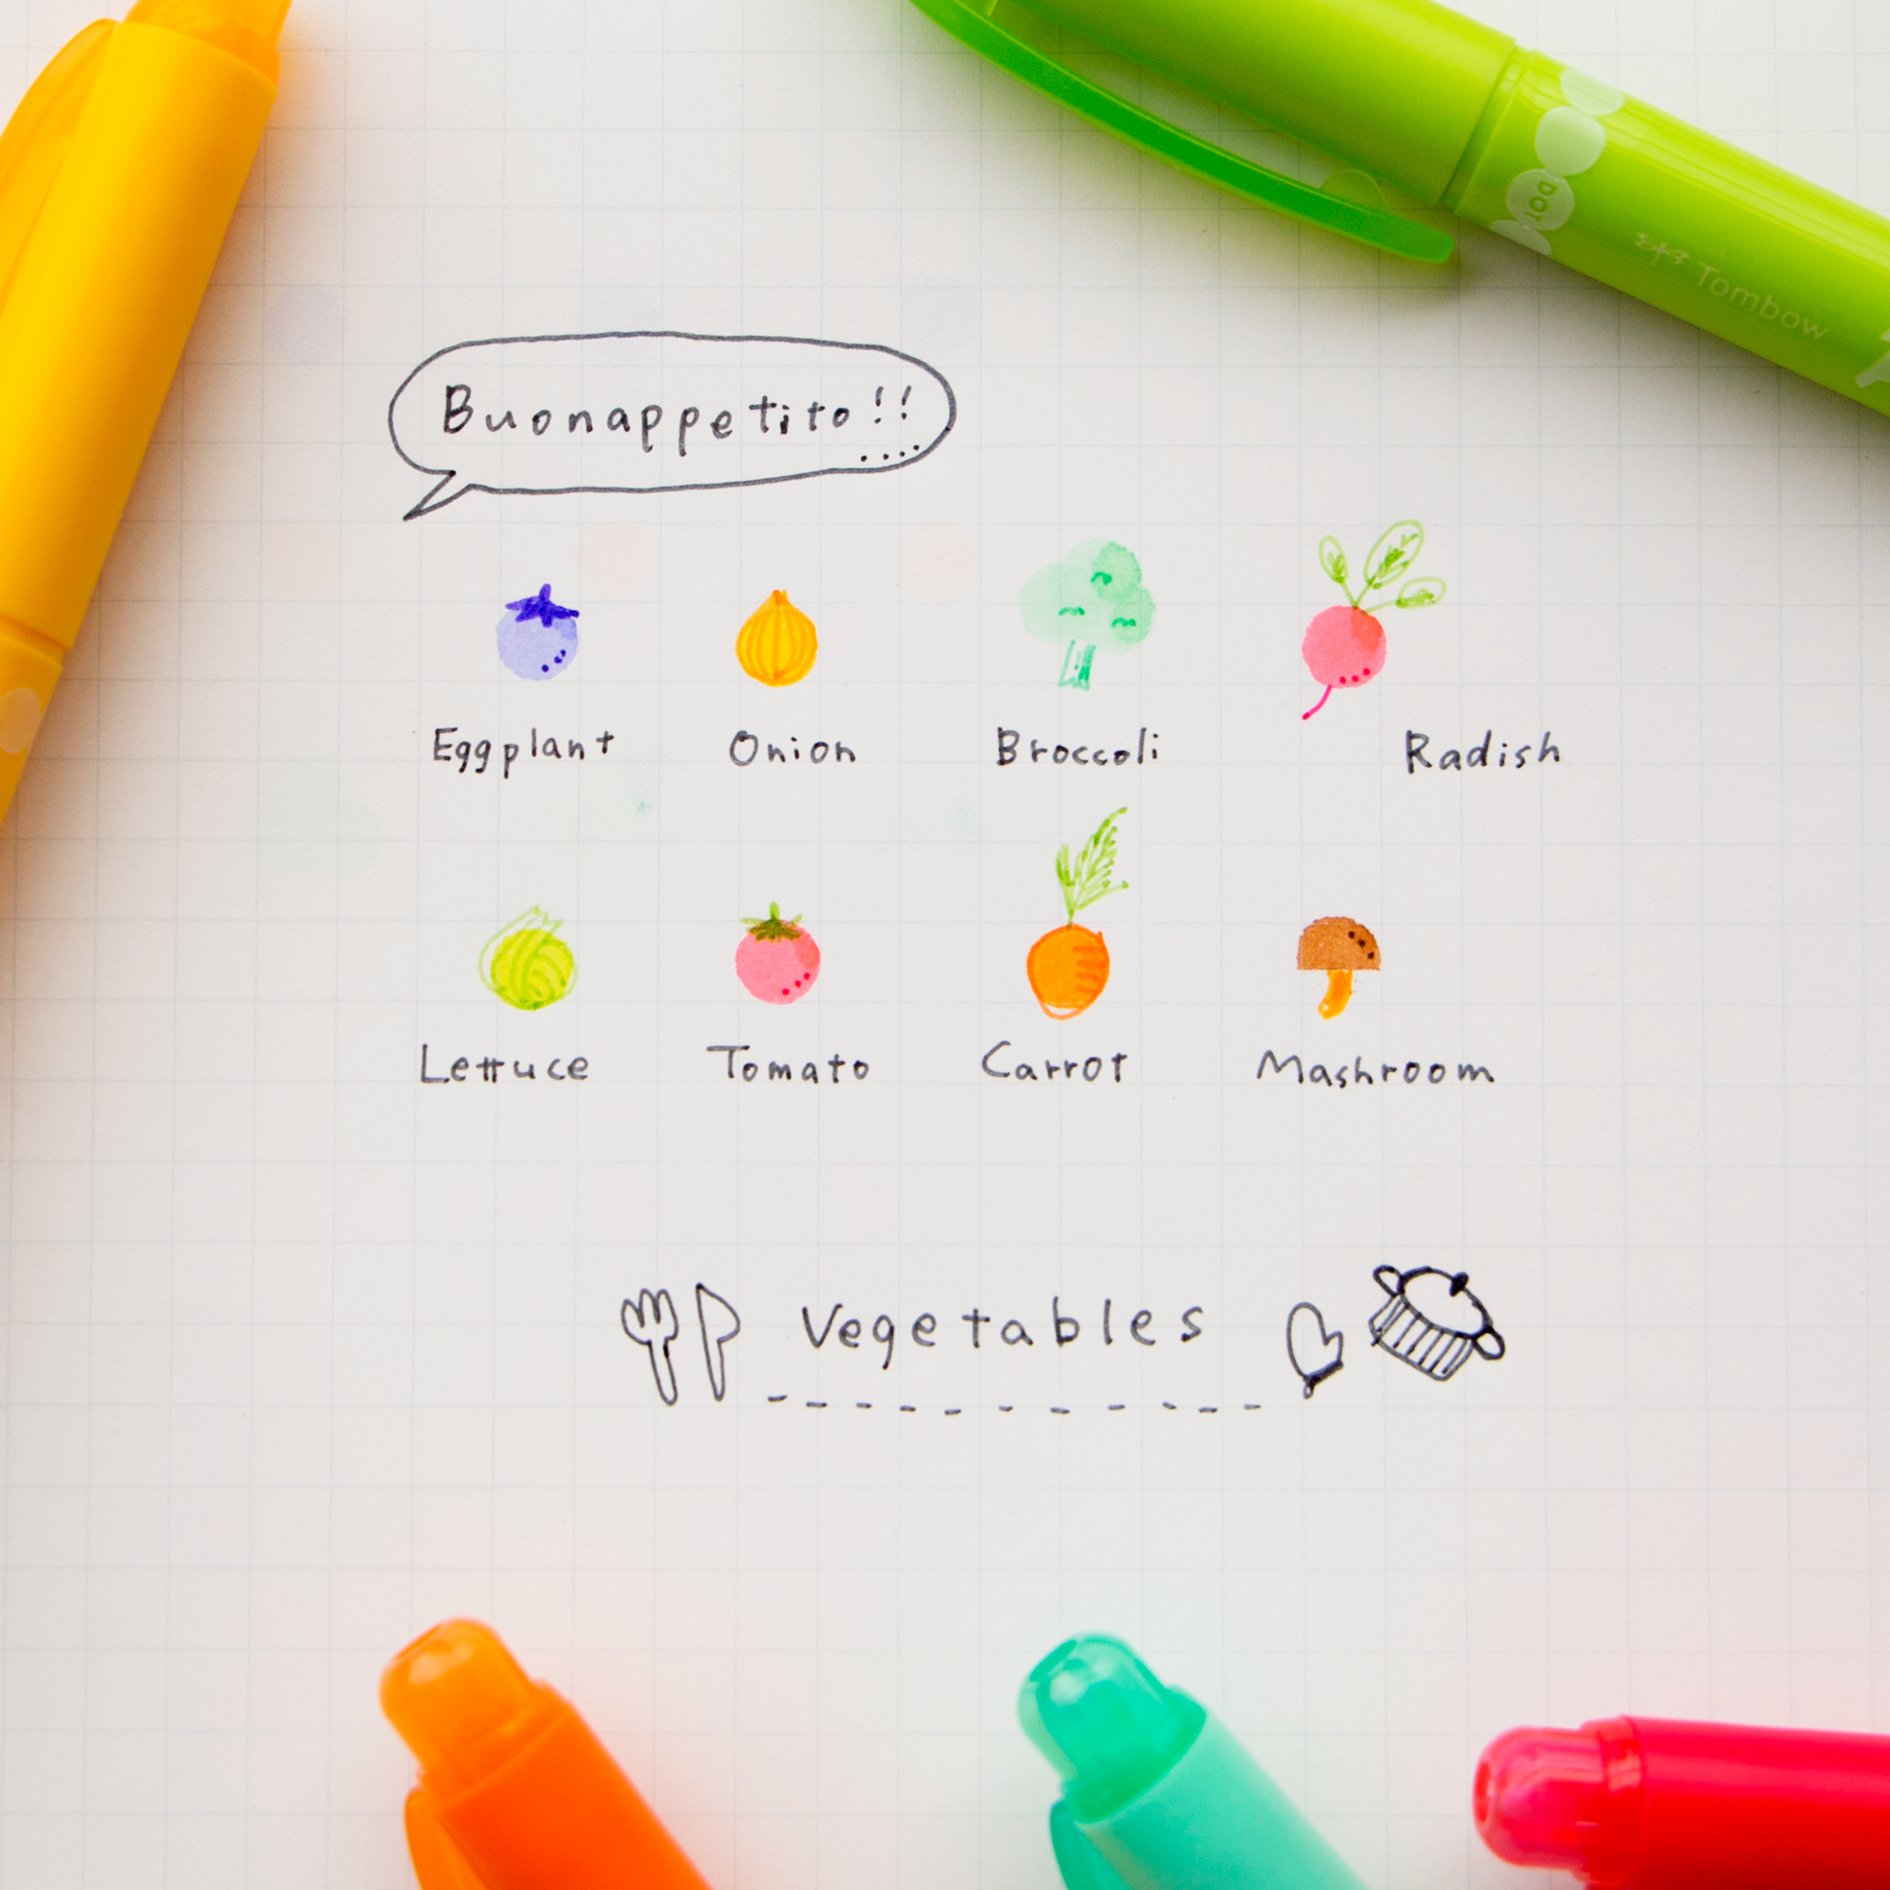 DOT
Tombow
Buonappetito!!
Eggplant Onion Broccoli Radish
Lettuce Tomato Carrot Mashroom
Vegetables